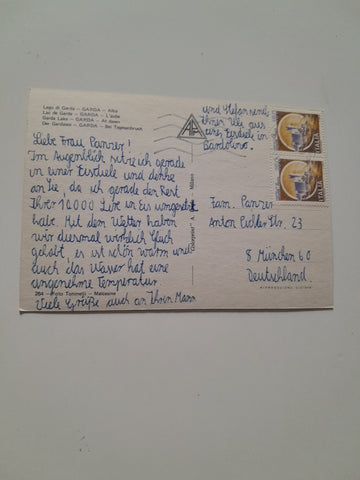 Lago di Garda - GARDA - Alba
Lac de Garde - GARDA - L'aube
Garda Lake - GARDA - At dawn
Der Gardasee - GARDA - Bei Tagesanbruch
Liebe Frau Panzer!
Im Augenblick sitze ich gerade
in einer Eisdiele und denke
an Sie, da ich gerade den Rest
Ihrer 10000 Lire in Eis umgesetzt
habe. Mit dem Wetter haben
wir diesmal wirklich Glück
gehabt, es ist schön warm und
auch das Wasser hat eine
angenehme Temperatur.
Viele Grüße auch an Ihren Mann
und Stefan sendet
Ihnen aus
einer Eisdiele in
Bardolino.
ITALIA
ITALIA
Fam. Panzer
Anton Str. 23
8 München 60
Deutschland.
264 - Foto Tommasi - Malcesine
Milano